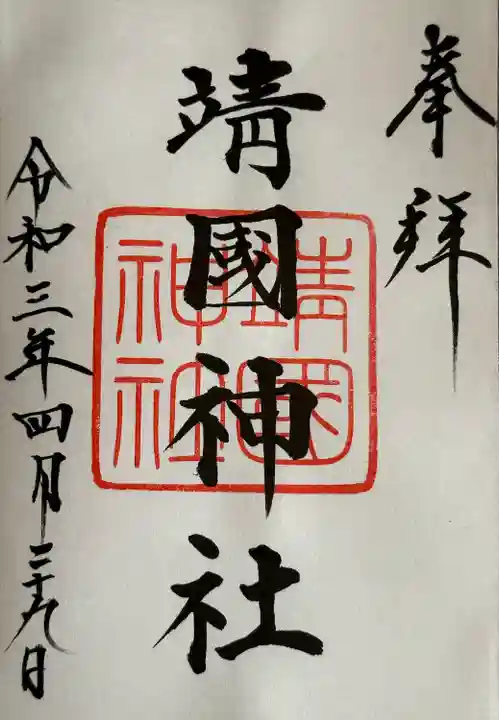 奉拝
靖國神社
靖国
神社
令和三年四月二十九日